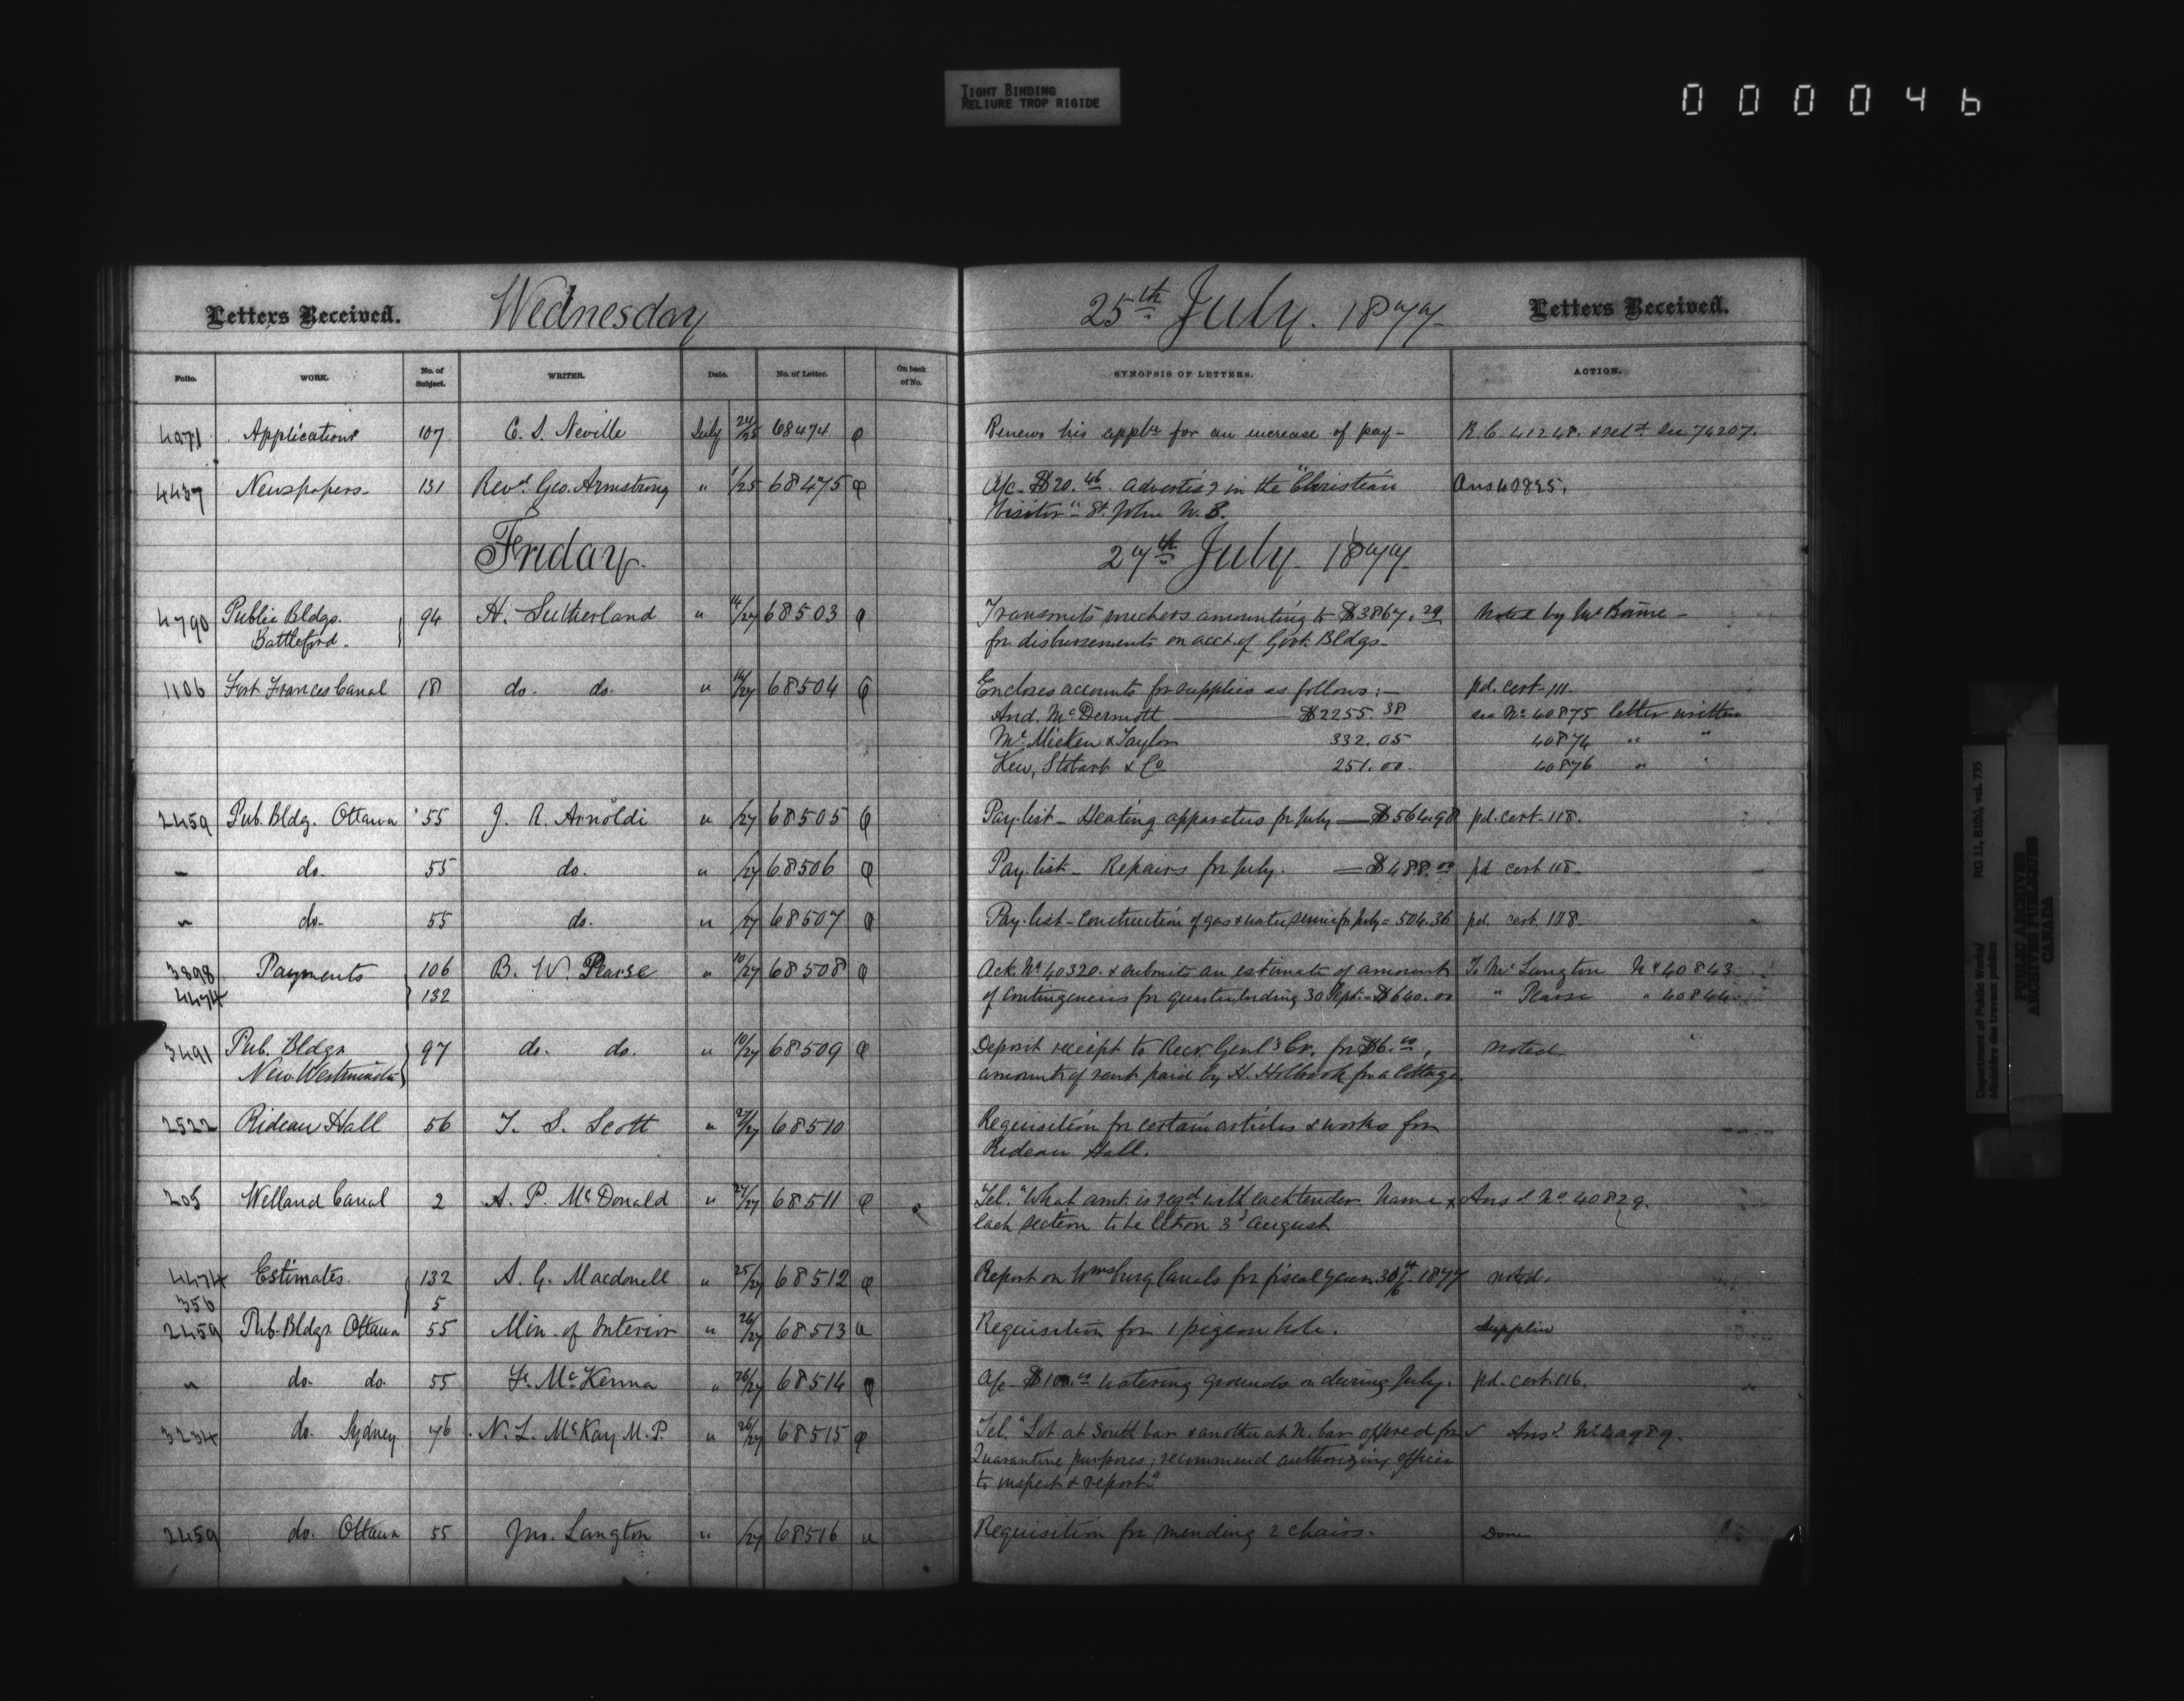 TIGHT BINDING
RELIURE TROP RIGIDE
000046
Letters Received. Wednesday 25th July. 1877 Letters Received.
Folio. WORK. No. of Subject. WRITER. Date. No. of Letter. On back of No. SYNOPSIS OF LETTERS. ACTION.
4071 Applications 107 C. S. Neville July 24/25 68474 Renews his appltn for an increase of pay - R.C. 41248. see 74207.
4437 Newspapers - 131 Revd. Geo. Armstrong " 1/25 68475 A/c - $20.46 advertisg in the "Christian Ans 40825,
Visitor" St. John N.B.
Friday. 27th July. 1877
4790 Public Bldgs. 94 H. Sutherland " 14/27 68503 Transmits vouchers amounting to $3867.29 Noted by Mr Baine -
Battleford. for disbursements on acct. of Govt. Bldgs -
1106 Fort Frances Canal 18 do. do. " 14/27 68504 Encloses accounts for supplies as follows :- pd. cert. 111.
And. McDermott $2255.38 see No 40875 letter written
McMicken & Taylor 332.05 40874 " "
Kew, Stobart & Co 251.00 40876 " "
2459 Pub. Bldg. Ottawa 55 J. R. Arnoldi " /27 68505 Pay-list - Heating apparatus for July - $564.98 pd. cert. 118.
" do. 55 do. " /27 68506 Pay-list - Repairs for July. - $488.00 pd cert 118.
" do. 55 do. " /27 68507 Pay-list - Construction of gas & water service for July = 504.36 pd. cert. 118.
3898 Payments 106 B. W. Pearse " 10/27 68508 Ack. No. 40320. & submits an estimate of amount To Mr Langton No 40843
4474 132 of contingencies for quarter ending 30 Sept. = $640.00 " Pearse " 40844
3491 Pub. Bldgs 97 do. do. " 10/27 68509 Deposit receipt to Recr. Genl's Cr. for $6.00, Noted
New Westminster amount of rent paid by H. Holbrook for a Cottage.
2522 Rideau Hall 56 T. S. Scott " 27/27 68510 Requisition for certain articles & works for
Rideau Hall.
205 Welland Canal 2 A. P. McDonald " 27/27 68511 Tel. "What amt. is reqd with each tender. Name Ansd No 40829.
each section to be let on 3d August
4474 Estimates. 132 A. G. Macdonell " 25/27 68512 Report on Wmsburg Canals for fiscal year 30/6 1877 noted.
356 5
2459 Pub. Bldgs Ottawa 55 Min. of Interior " 26/27 68513 Requisition for 1 pigeon hole. Supplied
" do. do. 55 McKenna " 26/27 68514 A/c - watering grounds during July. pd. cert. 116.
3234 do. Sydney 76 N. L. McKay M.P. " 26/27 68515 Tel. "Lot at South bar & another at N. bar offered for Ansd
Quarantine purposes; recommend authorizing officer
to inspect & report"
2459 do. Ottawa 55 Jno. Langton " /27 68516 Requisition for mending 2 chairs. Done
Department of Public Works/
Ministère des travaux publics
RG 11, B1(b), vol. 735
PUBLIC ARCHIVES
ARCHIVES PUBLIQUES
CANADA